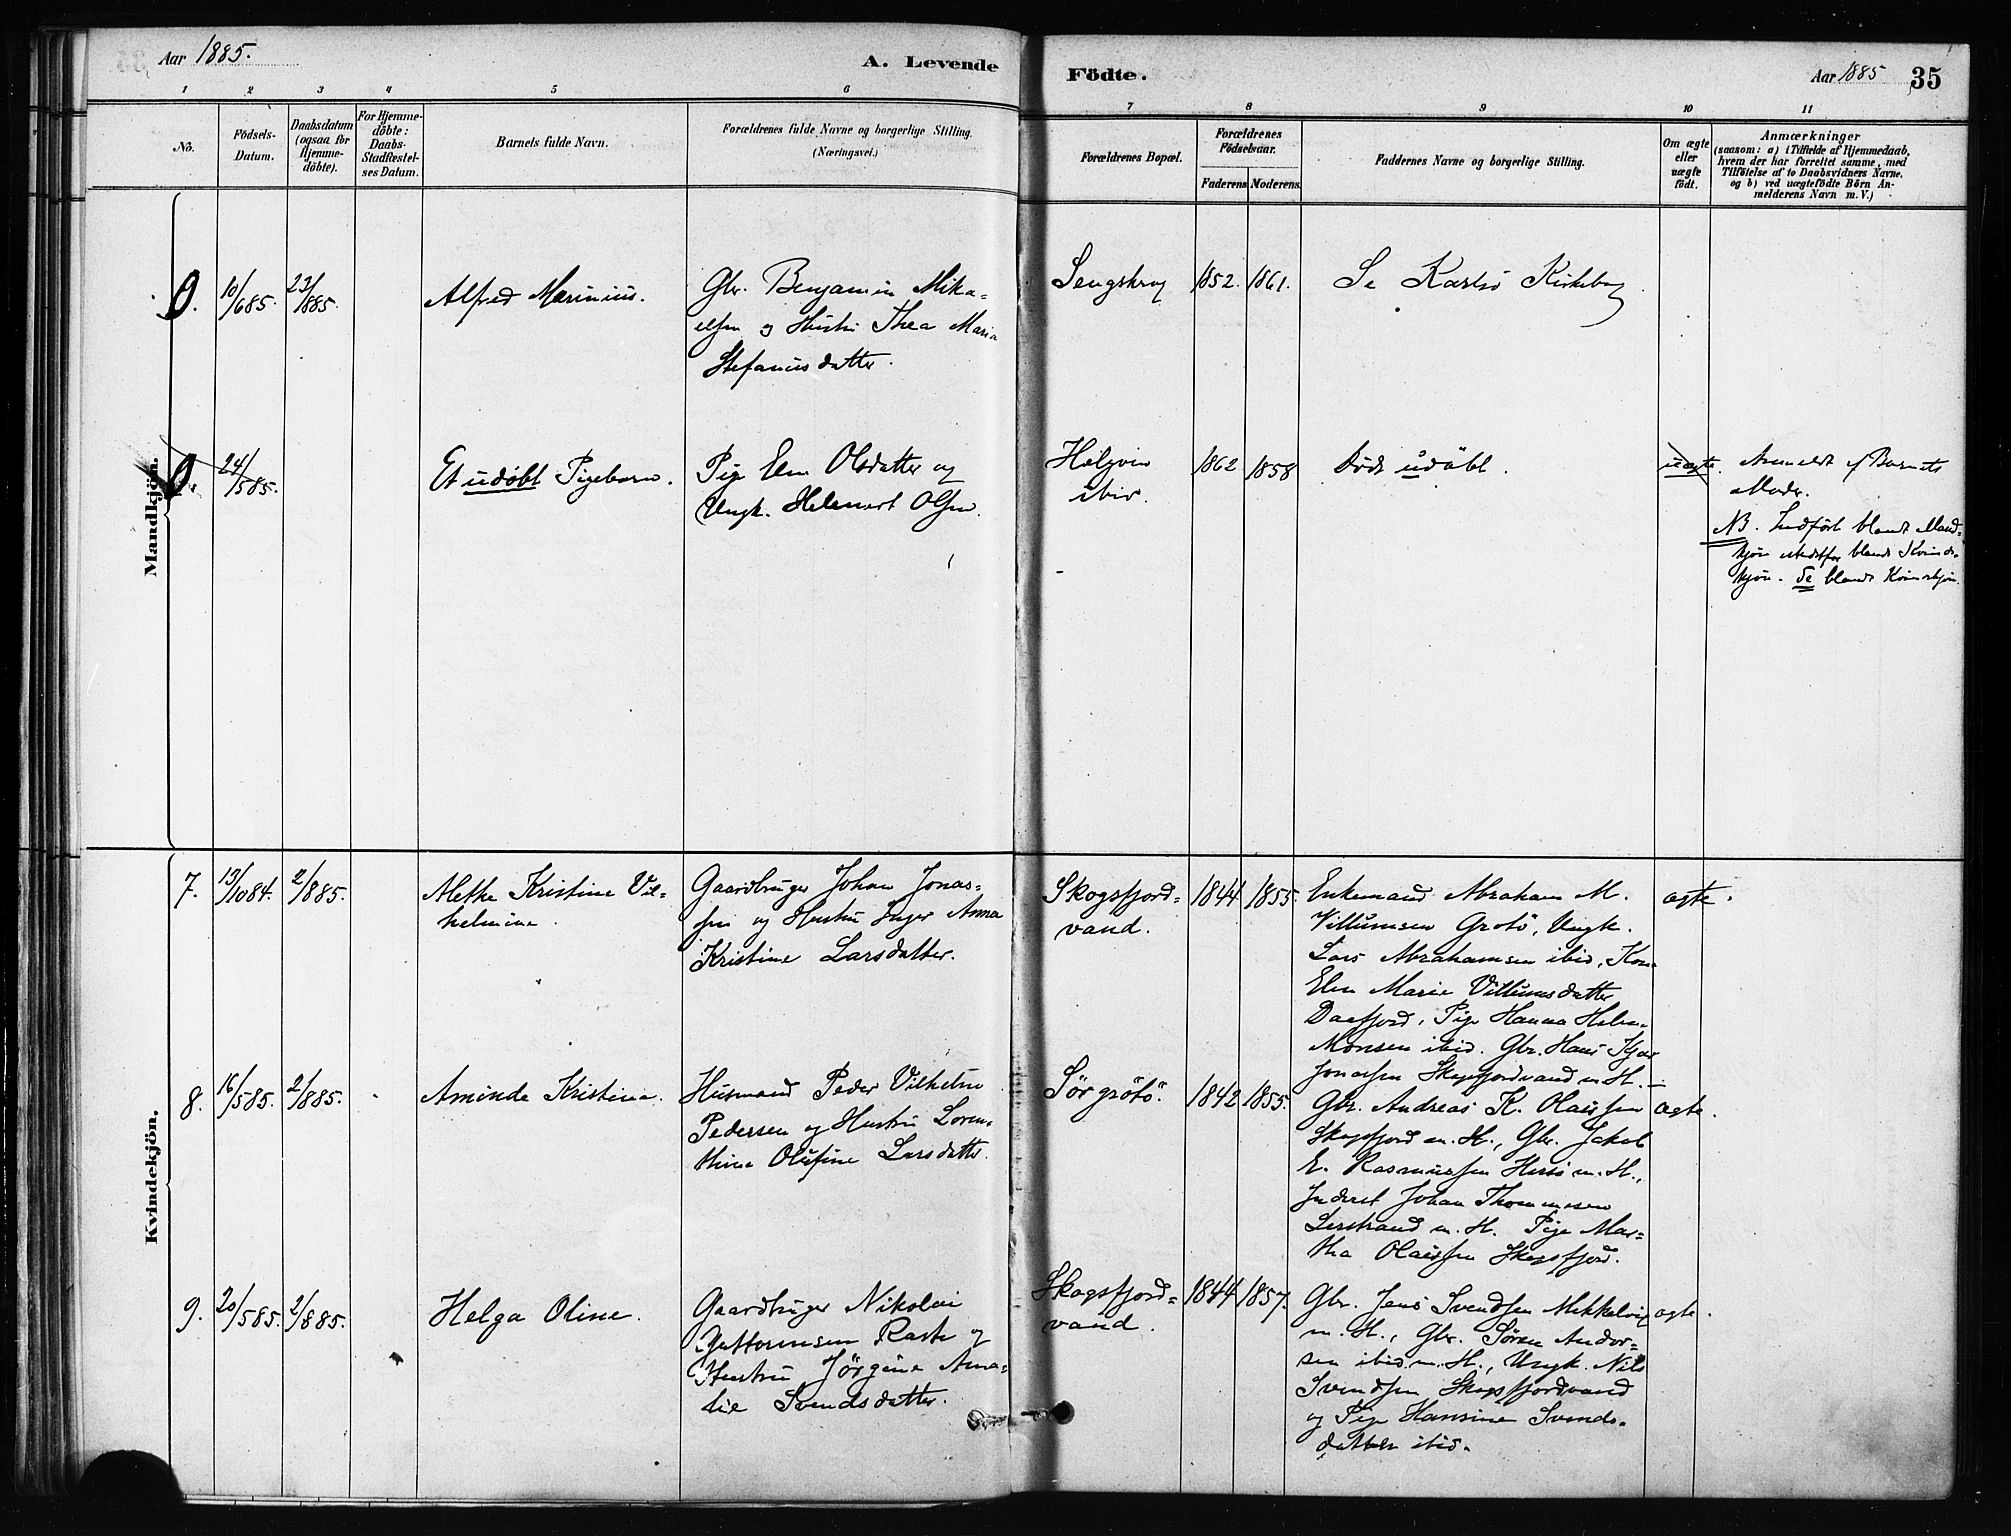 Aar 1885.
A. Levende
Födte.
Aar 1885
35
1 2 3 4 5 6 7 8 9 10 11
No.
Födsels-
Datum.
Daabsdatum
(ogsaa for
Hjemme-
döbte).
For Hjemme-
döbte:
Daabs-
Stadfæstel-
ses Datum.
Barnets fulde Navn.
Forældrenes fulde Navne og borgerlige Stilling.
(Næringsvei.)
Forældrenes Bopæl.
Forældrenes
Födselsaar.
Faderens Moderens
Faddernes Navne og borgerlige Stilling.
Om ægte
eller
uægte
födt.
Anmærkninger
(saasom: a) i Tilfælde af Hjemmedaab,
hvem der har forrettet samme, med
Tilföielse af to Daabsvidners Navne.
og b) ved uægtefödte Börn An-
melderens Navn m. V.)
Mandkjön.
0. 10/685. 23/885.
Alfred Marinius.
Gbr. Benjamin Mika-
elsen og Hustru Thea Maria
Stefanusdatter.
1852. 1861.
Se Karlsö Kirkebog
0. 24/585.
Et udöbt Pigebarn.
Pige Elen Olsdatter og
Ungk. Helmert Olsen.
Helgøen
ibid.
1862 1858
Död udöbt.
uægte.
Anmeldt af Barnets
Moder.
NB. Indfört blandt Mand-
kjön istedetfor blandt Kvinde-
kjön. Se blandt Kvindekjön.
Kvindekjön.
7. 13/1084. 2/885.
Alethe Kristine Vil-
helmine.
Gaardbruger Johan Jonas-
sen og Hustru Inger Anna
Kristine Larsdatter.
Skogsfjord-
vand.
1844 1855.
Enkemand Abraham M.
Villumsen Grotö, Ungk.
Lars Abrahamsen ibid, Kone
Elen Marie Villumsdatter
Daafjord, Pige Hanna Helene
Monsen ibid. Gbr. Hans
Jonassen Skogsfjordvand m. H. –
ægte.
8. 16/585. 2/885.
Aminde Kristine.
Husmand Peder Vilhelm
Pedersen og Hustru Loren-
thine Olufine Larsdatter.
Sörgrötö.
1842 1855.
Gbr. Andreas K. Olaissen
Skogsfjord m. H., Gbr. Jakob
E. Rasmussen Hersö m. H.,
Inderst Johan Thommesen
Leirstrand m. H. Pige Mar-
tha Olaissen Skogsfjord.
ægte.
9. 20/585. 2/885.
Helga Oline.
Gaardbruger Nikolai
Guttormsen Rask og
Hustru Jörgine Ama-
lie Svendsdatter.
Skogsfjord-
vand.
1844 1857.
Gbr. Jens Svendsen Mikkelvig
m. H., Gbr. Sören Ander-
sen ibid m. H., Ungk. Nils
Svendsen Skogsfjordvand
og Pige Hansine Svends-
datter ibid.
ægte.